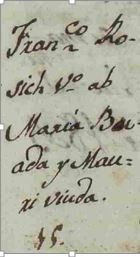 Fran.co Ro-
sich V.o ab
María Bou-
ada y Mau=
ri viuda.
15.